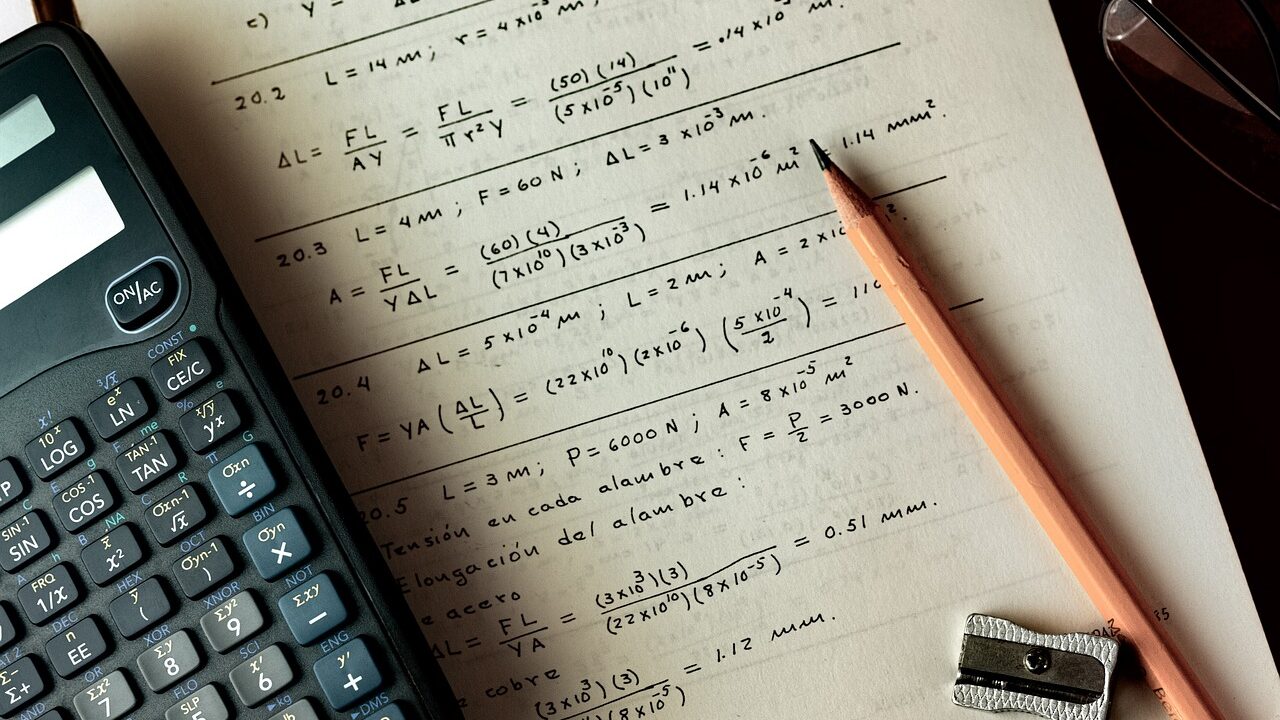 c) Y =
20.2 L = 14 m; r = 4 x 10⁻³ m,
ΔL = FL / AY = FL / π r² Y = (50)(14) / (5 x 10⁻⁵)(10¹¹) = .14 x 10⁻³ m.
20.3 L = 4 m; F = 60 N; ΔL = 3 x 10⁻³ m.
A = FL / Y ΔL = (60)(4) / (7 x 10¹⁰)(3 x 10⁻³) = 1.14 x 10⁻⁶ m² = 1.14 mm².
20.4 ΔL = 5 x 10⁻⁴ m; L = 2 m; A = 2 x 10
F = YA (ΔL / L) = (22 x 10¹⁰)(2 x 10⁻⁶) (5 x 10⁻⁴ / 2) = 110
20.5 L = 3 m; P = 6000 N; A = 8 x 10⁻⁵ m²
Tensión en cada alambre: F = P / 2 = 3000 N.
Elongación del alambre:
e acero
ΔL = FL / YA = (3 x 10³)(3) / (22 x 10¹⁰)(8 x 10⁻⁵) = 0.51 mm.
e cobre
(3 x 10³)(3) / (8 x 10⁻⁵) = 1.12 mm.
ON/AC
CONST
FIX
CE/C
³√x
eˣ
LN
% e
ˣ√y
yˣ
x!
10ˣ
LOG
F me
TAN⁻¹
TAN
π G
σxn
÷
P
E g
COS⁻¹
COS
C R
σxn-1
√x
BIN
σyn
×
C
SIN⁻¹
SIN
B NA
x̄
x²
OCT
σyn-1
)
NOT
Σxy
−
A h
FRQ
1/x
HEX
ȳ
(
XNOR
Σy²
9
ENG
y'
+
DEC
n
EE
XOR
Σy
8
SCI
x'
6
▸DMS
STAT 2
Σ−
Σ+
OR
Σx²
7
FLO
SLP
5
▸kg
AND